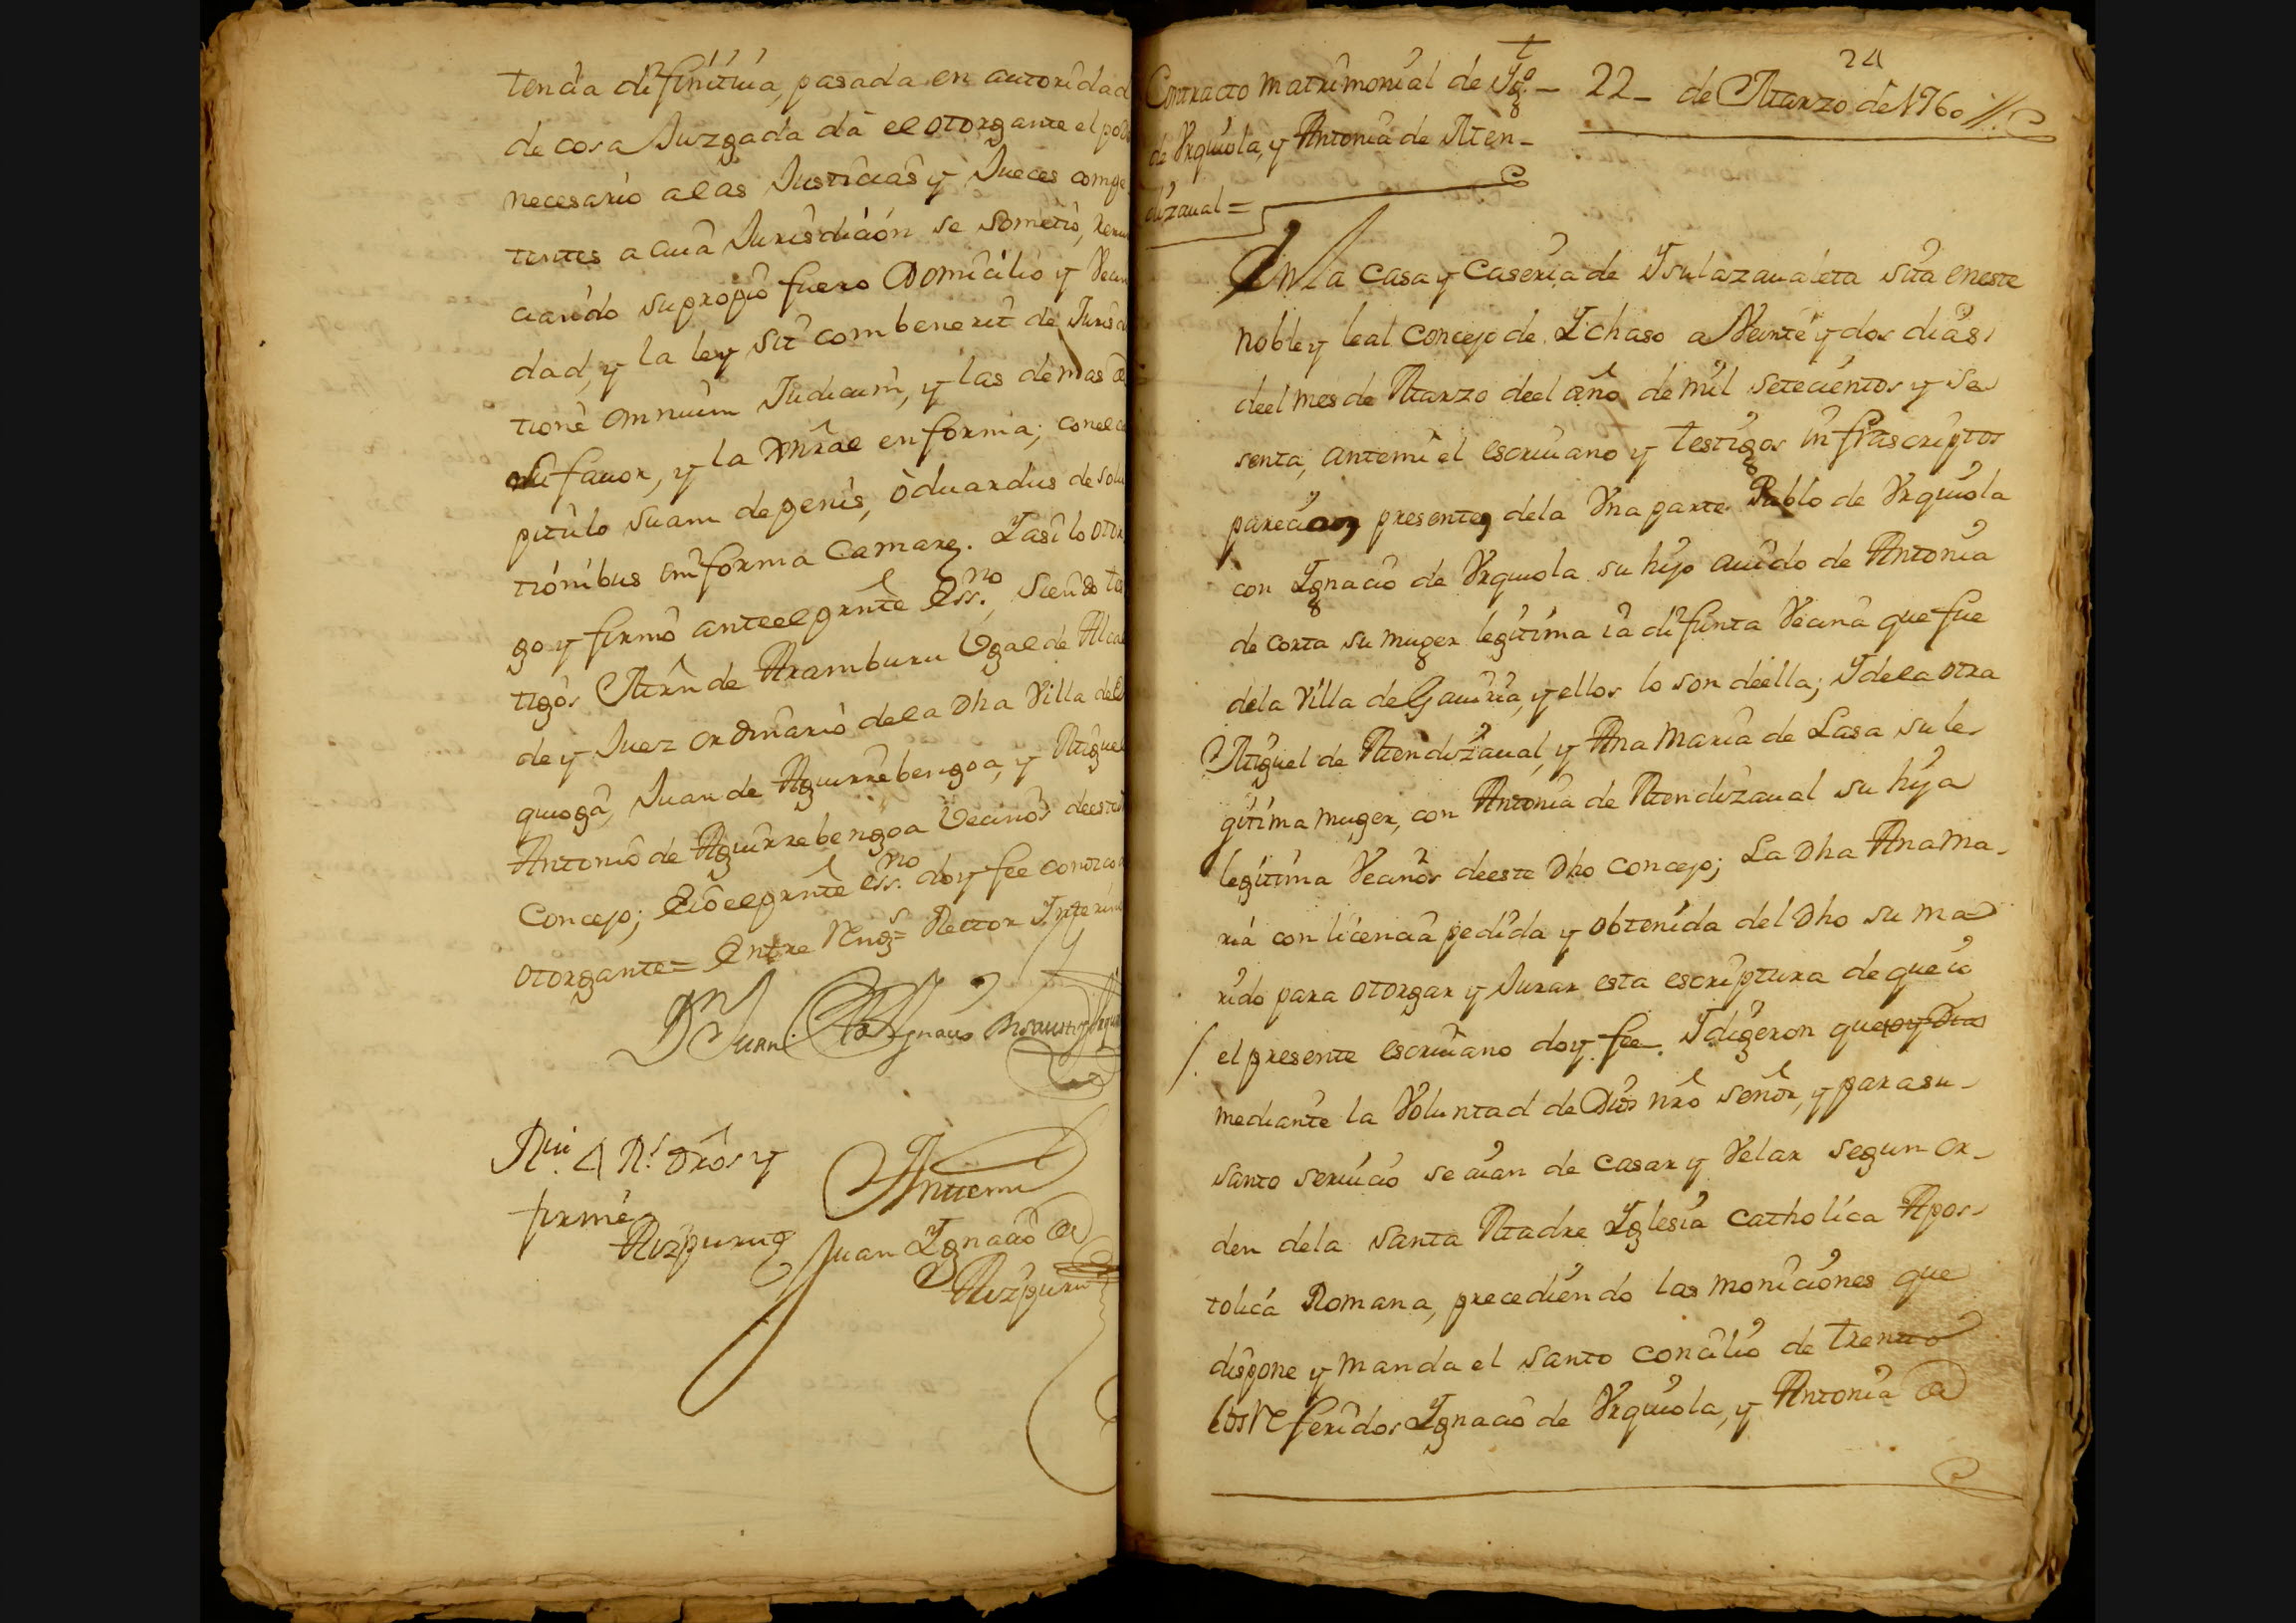 tencia difinitiua, pasada en autoridad
de cosa Juzgada dà el otorgante el po
necesario a las Justicias y Jueces compe
tentes a cuia Jurisdición se sometió, renun
ciando su propio fuero Domicilio y Vecin
dad, y la ley sit combenerit de Jurisd
tione omnium Judicum, y las demas de
su fauor, y la Gnrãl en forma; con el ca
pitulo suam de penis, òduardus de solu
tionibus em forma Camarę. I asi lo otor
go y firmó ante el prnte Essno, siendo tes
tigos Mrñ de Aramburu Vgalde Alcal
de y Juez ordinario de la Dha Villa de
quioga, Juan de Aguirrebengoa, y Miguel
Antonio de Aguirrebengoa Vecinos de este
Concejo; E io el prnte essno doy fee conozco
otorgante= Entre Rengs= Rettor Interin
Dn Juan Ignacio
Rui 4 Rs drõs y
firmé
Aizpuru
Antemi
Juan Ignacio de
Aizpuru
24
Contracto matrimonial de Igo – 22 – de Marzo de 1760 //
de Vrquiola, y Antonia de Men-
dizaual =
En la Casa y Caseria de Isulazaualeta sita en este
noble y leal Concejo de Ichaso a Veinte y dos dias
de el mes de Marzo de el año de mil setecientos y se
senta, antemi el escriuano y testigos infrascriptos
parecion presentes de la Vna parte Pablo de Vrquiola
con Ignacio de Vrquiola su hijo auido de Antonia
de corta su muger legitima ia difunta Vecina que fue
de la Villa de Gauiria, y ellos lo son de ella; I de la otra
Miguel de Mendizaual, y Ana Maria de Lasa su le
gitima muger, con Antonia de Mendizaual su hija
legitima Vecinos de este Dho Concejo; La Dha Ana Ma-
ria con licencia pedida y obtenida del Dho su ma
rido para otorgar y Jurar esta escriptura de que io
el presente escriuano doy fee. I digeron que
mediante la Voluntad de Dios nrõ señor, y para su
santo seruicio se aian de Casar y Velar segun or-
den de la Santa Madre Iglesia Catholica Apos-
tolica Romana, precediendo las moniciones que
dispone y manda el Santo Concilio de trento
los Referidos Ignacio de Vrquiola, y Antonia de